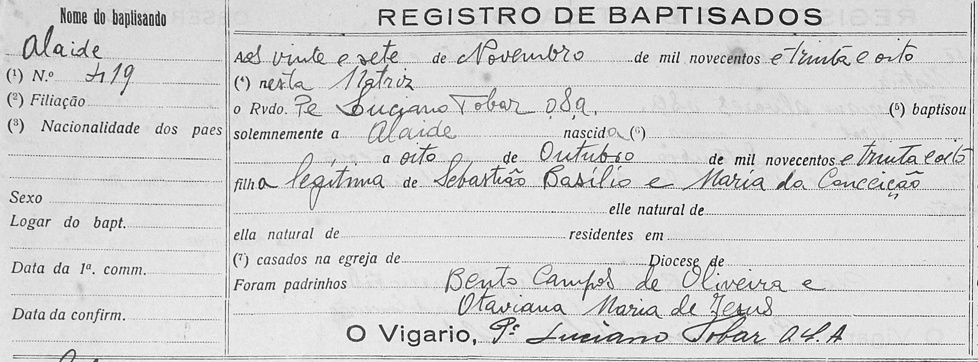 Nome do baptisando
Alaide
(¹) N.º 419
(²) Filiação
(³) Nacionalidade dos paes
Sexo
Logar do bapt.
Data da 1ª. comm.
Data da confirm.
REGISTRO DE BAPTISADOS
Aos vinte e sete de Novembro de mil novecentos e trinta e oito
(⁴) nesta Matriz
o Rvdo. Pe Luciano Tobar O.S.A. (⁵) baptisou
solemnemente a Alaide nascida (⁶)
a oito de Outubro de mil novecentos e trinta e oito
filha legítima de Sebastião Basílio e Maria da Conceição
elle natural de
ella natural de residentes em
(⁷) casados na egreja de Diocese de
Foram padrinhos Bento Campos de Oliveira e
Otaviana Maria de Jesus
O Vigario, Pe Luciano Tobar O.S.A